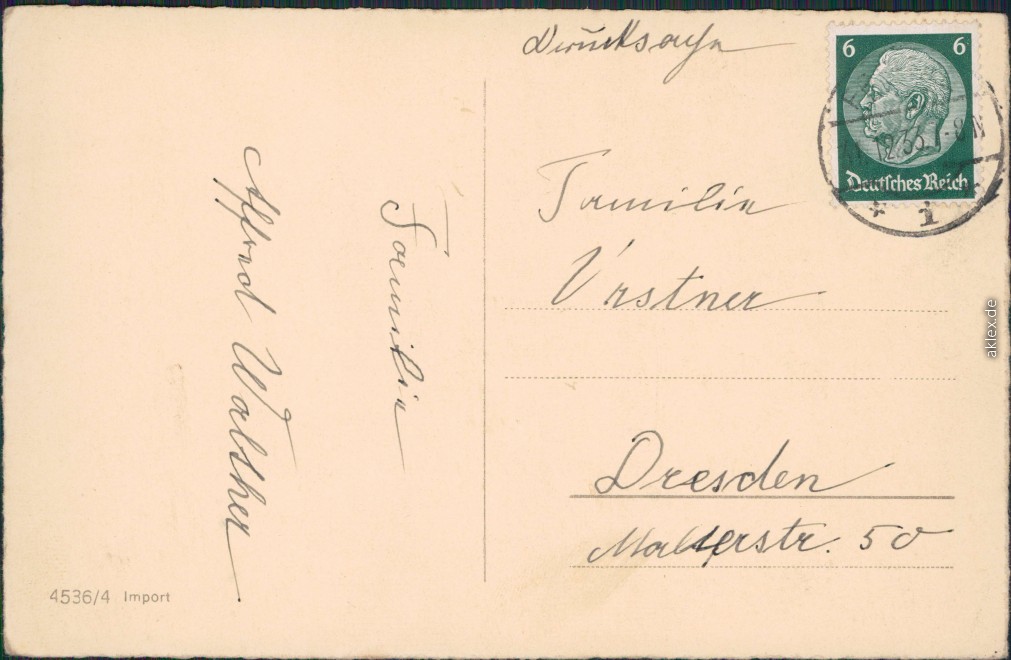 Drucksache
6 6
Deutsches Reich
12.35.
* i
Familie
Dresden
Malterstr. 50
Familie
Alfred Walther
4536/4 Import
aklex.de